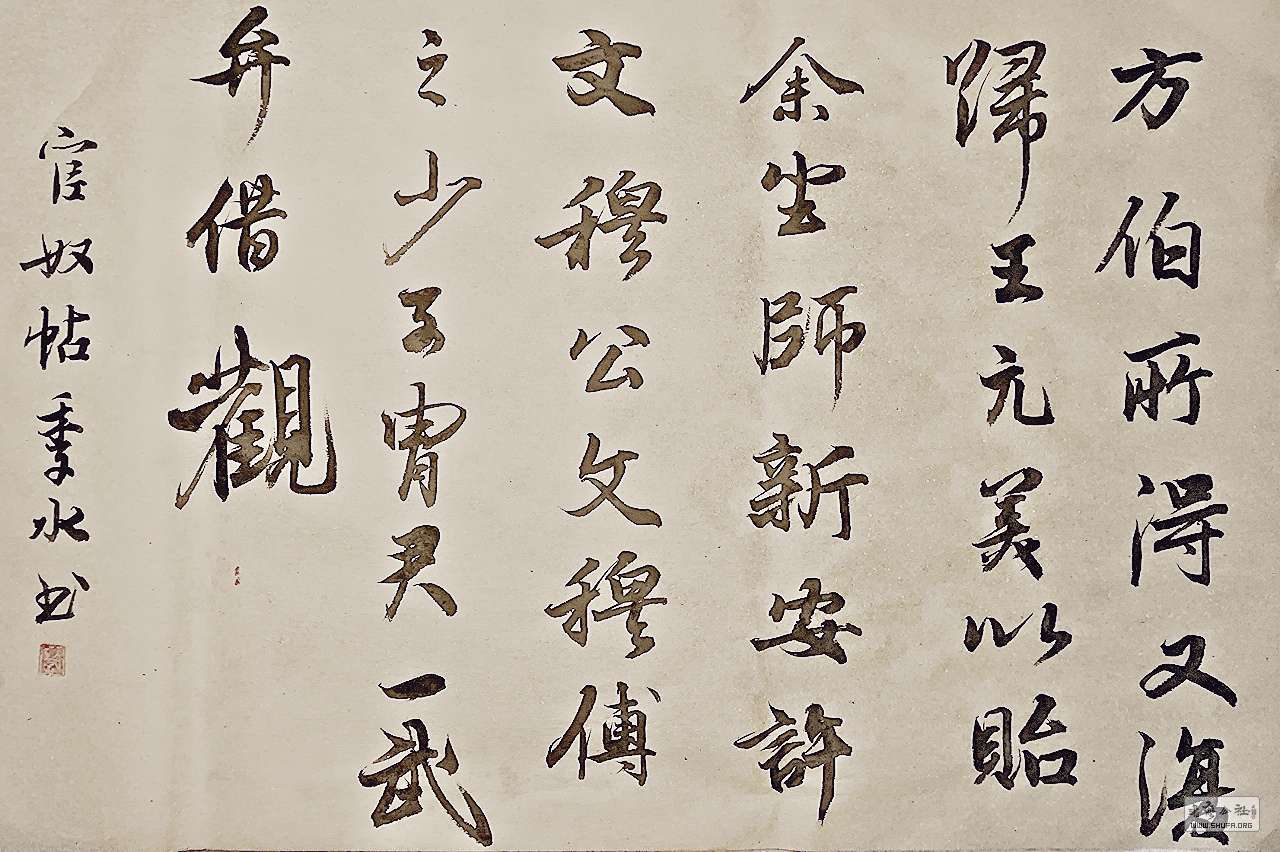 方伯所得又
歸王元美以貽
余坐師新安許
文穆公文穆傳
之少子胄君一武
弁借觀
官奴帖季水书
WWW.SHUFA.ORG